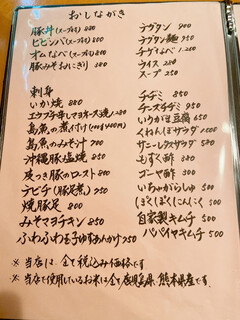 おしながき
豚丼(スープ付き) 880
ビビンバ(スープ付き) 880
オムなべ(スープ付き) 800
豚みそおにぎり 280
ラグタン 900
ラグタン麺 950
チゲなべ 1,200
ライス 220
スープ 250
刺身
いか焼 880
島魚の煮付け
島魚のみそ汁 700
沖縄豚塩焼 850
皮つき豚のロースト 800
テビチ(豚足煮) 750
焼豚足 800
みそマヨチキン 850
ふわふわ玉子ゆずあんかけ 750
チヂミ 850
チーズチヂミ 950
いりがき豆腐 650
くねんぼサラダ 1000
サニーレタスサラダ 500
もずく酢 380
ゴーヤ酢 300
いちゃがらしゅ 500
ぽくぽくにんにく 500
自家製キムチ 500
パパイヤキムチ 500
※ 当店は、全て税込み価格です
※ 当店で使用しているお米は全て鹿児島県、熊本県産です。